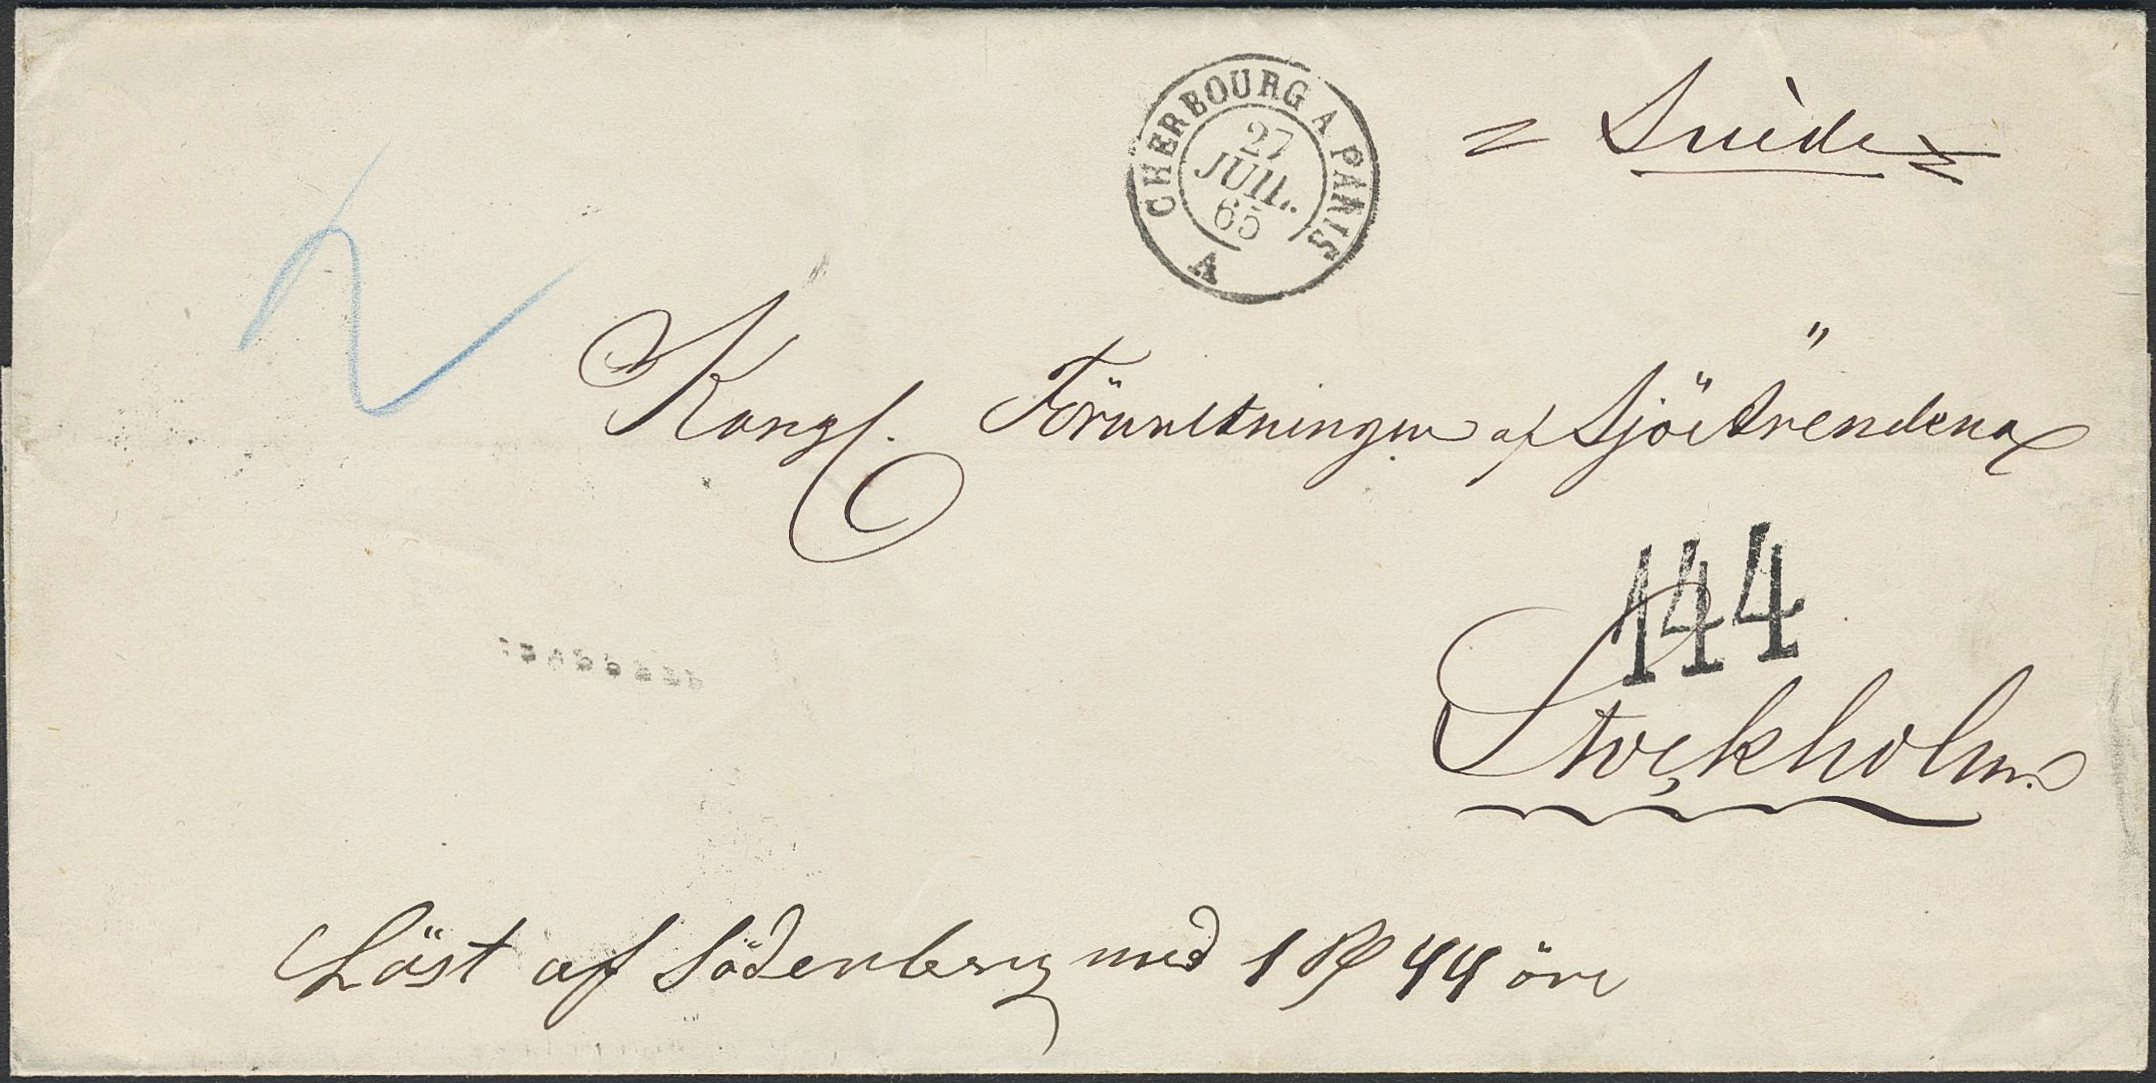 CHERBOURG A PARIS
27
JUIL.
65
A
Suède
2
Kongl. Förvaltningen af SjöÄrendena
144
Stockholm.
Löst af Söderberg med 1 Rd 44 öre